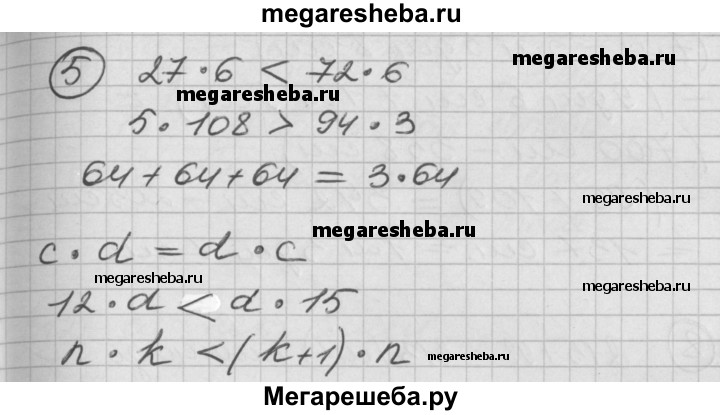 megaresheba.ru
5 27 · 6 < 72 · 6
megaresheba.ru
megaresheba.ru
5 · 108 > 94 · 3
64 + 64 + 64 = 3 · 64
megaresheba.ru
megaresheba.ru
c · d = d · c
megaresheba.ru
megaresheba.ru
12 · d < d · 15
n · k < (k+1) · n
megaresheba.ru
Мегарешеба.ру